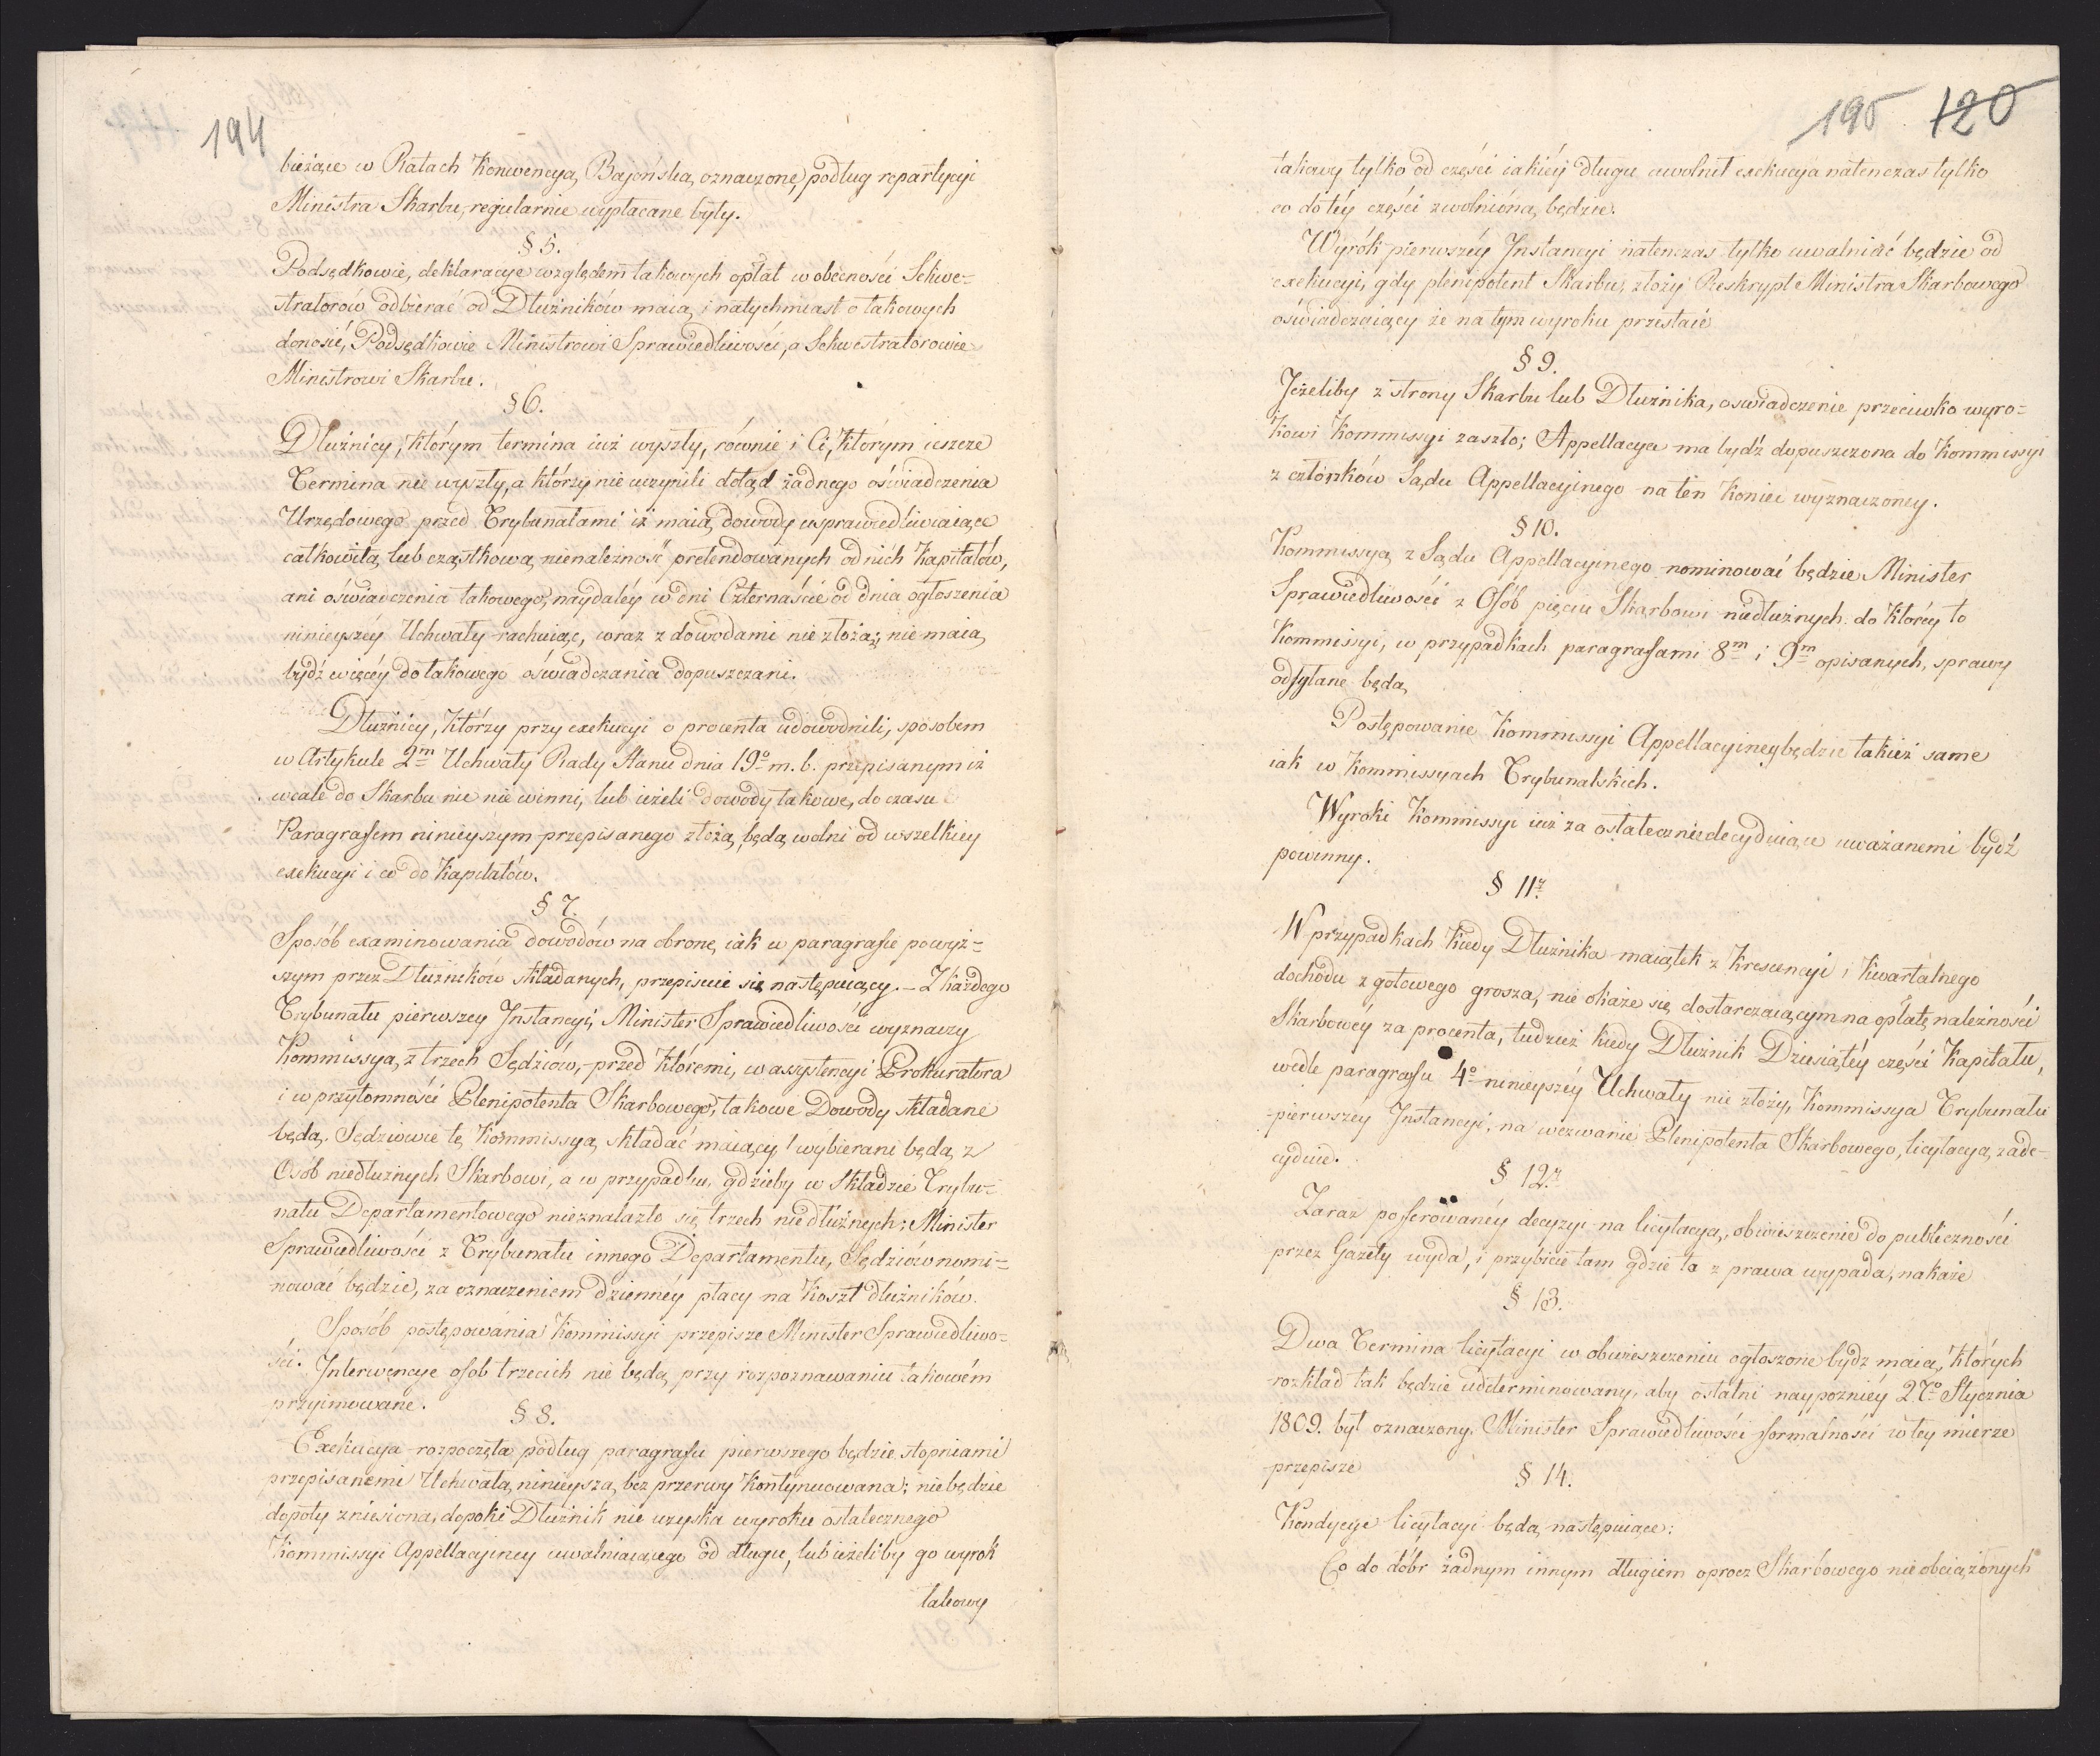 194
bieżące w Ratach Konwencyą Bajońską oznaczone, podług repartycyi
Ministra Skarbu, regularnie wypłacane były.
§ 5.
Podsędkowie, deklaracye względem takowych opłat w obecności Sekwe=
stratorów odbierać od Dłużników maią, i natychmiast o takowych
donosić, Podsędkowie Ministrowi Sprawiedliwości, a Sekwestratorowie
Ministrowi Skarbu.
§ 6.
Dłużnicy, którym termina iuż wyszły, równie i Ci, którym ieszcze
Termina nie wyszły, a którzy nie uczynili dotąd żadnego oświadczenia
Urzędowego przed Trybunałami iż maią dowody usprawiedliwiaiące
całkowitą lub cząstkową nienależność pretendowanych od nich Kapitałów,
ani oświadczenia takowego, naydaléy w dni Czternaście od dnia ogłoszenia
ninieyszéy Uchwały rachuiąc, wraz z dowodami nie złożą; nie maią
bydź więcéy do takowego oświadczania dopuszczani.
Dłużnicy, którzy przy exekucyi o procenta udowodnili, sposobem
w Artykule 2m Uchwały Rady Stanu dnia 19o m. b. przepisanym iż
wcale do Skarbu nic nie winni, lub ieżeli dowody takowe, do czasu
Paragrafem ninieyszym przepisanego złożą, będą wolni od wszelkiey
exekucyi i co do Kapitałów.
§ 7.
Sposób examinowania dowodów na obronę, iak w paragrafie powyż=
szym przez Dłużników składanych, przepisuie się następuiący. – Z każdego
Trybunału pierwszey Instancyi, Minister Sprawiedliwości wyznaczy
Kommissyą, z trzech Sędziów, przed któremi, w assystencyi Prokuratora
i w przytomności Plenipotenta Skarbowego, takowe Dowody składane
będą. Sędziowie tę Kommissyą składać maiący, wybierani będą z
Osób niedłużnych Skarbowi, a w przypadku, gdzieby w Składzie Trybu=
nału Departamentowego nieznalazło się trzech niedłużnych; Minister
Sprawiedliwości z Trybunału innego Departamentu, Sędziów nomi=
nować będzie, za oznaczeniem dziennéy płacy na Koszt dłużników.
Sposób postępowania Kommissyi przepisze Minister Sprawiedliwo=
ści. Interwencye osob trzecich nie będą przy rozpoznawaniu takowém
przyimowane.
§ 8.
Exekucya rozpoczęta podług paragrafu pierwszego będzie stopniami
przepisanemi Uchwałą ninieyszą, bez przerwy Kontynuowana; nie będzie
dopóty zniesiona, dopóki Dłużnik nie uzyska wyroku ostatecznego
Kommissyi Appellacyiney uwalniaiącego od długu, lub ieżeliby go wyrok
takowy
195 120
takowy tylko od części iakiéy długu uwolnił exekucya natenczas tylko
co do téy części zwolnioną będzie.
Wyrók pierwszéy Instancyi natenczas tylko uwalniać będzie od
exekucyi, gdy plenipotent Skarbu, złoży Reskrypt Ministra Skarbowego
oświadczaiący że na tym wyroku przestaie
§ 9.
Jeżeliby z strony Skarbu lub Dłużnika, oświadczenie przeciwko wyro=
kowi Kommissyi zaszło; Appellacya ma bydź dopuszczona do Kommissyi
z członków Sądu Appellacyinego na ten koniec wyznaczoney.
§ 10.
Kommissyą z Sądu Appellacyinego nominować będzie Minister
Sprawiedliwości z Osób pięciu Skarbowi niedłużnych do któréy to
Kommissyi, w przypadkach paragrafami 8m i 9m opisanych, sprawy
odsyłane będą
Postępowanie Kommissyi Appellacyiney będzie takież same
iak w Kommissyach Trybunalskich.
Wyroki Kommissyi iuż za ostatecznie decyduiące uważanemi bydź
powinny.
§ 11.
W przypadkach kiedy Dłużnika maiątek z krescencyi i kwartalnego
dochodu z gotowego grosza, nie okaże się dostarczaiącym na opłatę należności
Skarbowéy za procenta, tudzież kiedy Dłużnik Dziesiątéy części Kapitału,
wedle paragrafu 4o ninieyszéy Uchwały nie złoży, Kommissya Trybunału
pierwszey Instancyi, na wezwanie Plenipotenta Skarbowego, licytacyą zade=
cyduie.
§ 12.
Zaraz po ferowanéy decyzyi na licytacyą, obwieszczenie do publiczności
przez Gazety wyda, i przybicie tam gdzie to z prawa wypada, nakaże
§ 13.
Dwa Termina licytacyi w obwieszczeniu ogłoszone bydź maią, których
rozkład tak będzie udeterminowany, aby ostatni naypózniéy 27o Stycznia
1809. był oznaczony. Minister Sprawiedliwości formalności w tey mierze
przepisze
§ 14.
Kondycye licytacyi będą następuiące:
Co do dóbr żadnym innym długiem oprocz Skarbowego nieobciążonych